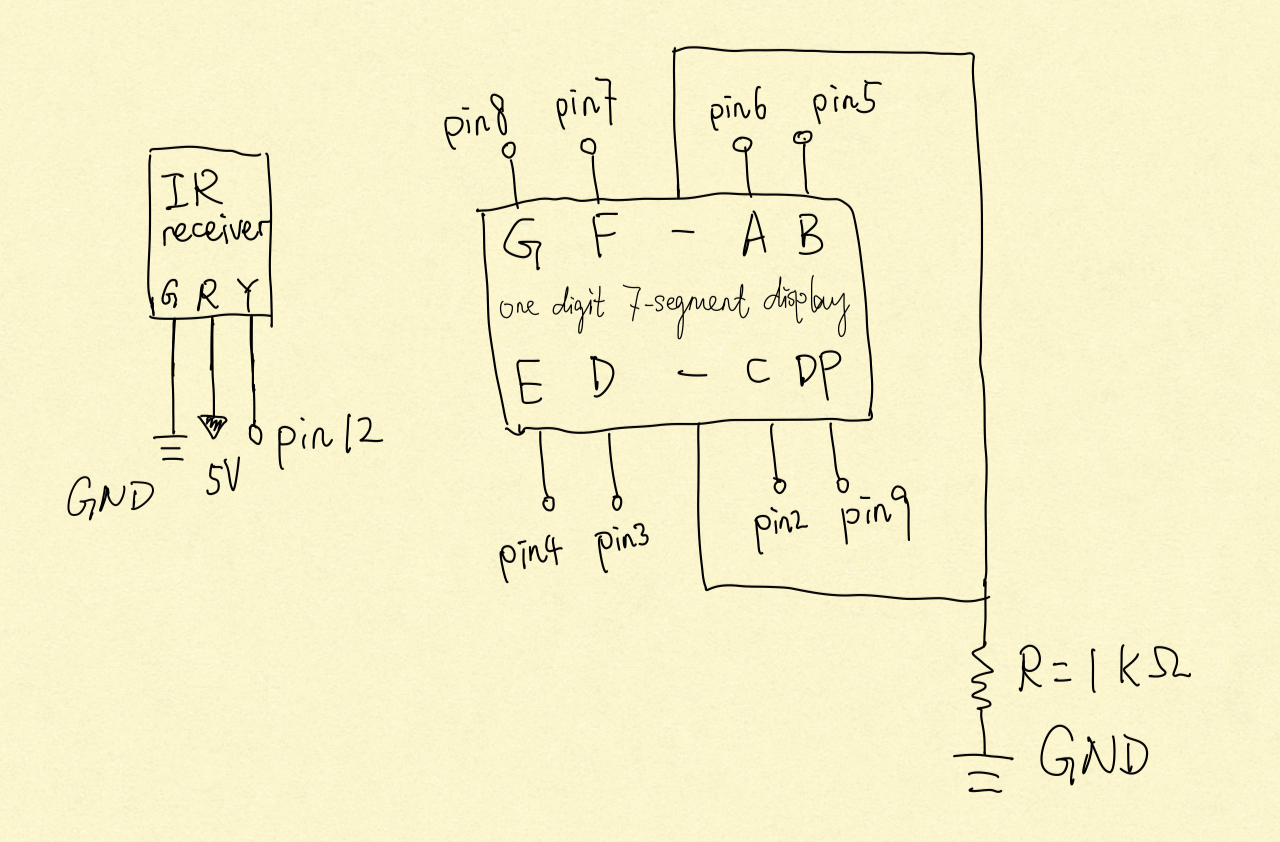 IR
receiver
G R Y
GND
5V
pin12
pin8
pin7
pin6
pin5
G F - A B
one digit 7-segment display
E D - C DP
pin4
pin3
pin2
pin9
R=1KΩ
GND